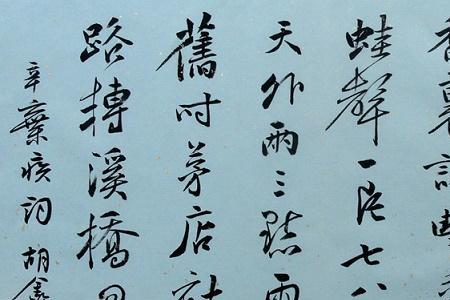 香裏說豐
蛙聲一片七八
天外兩三點雨
舊时茅店社
路轉溪橋
辛棄疾词胡鑫